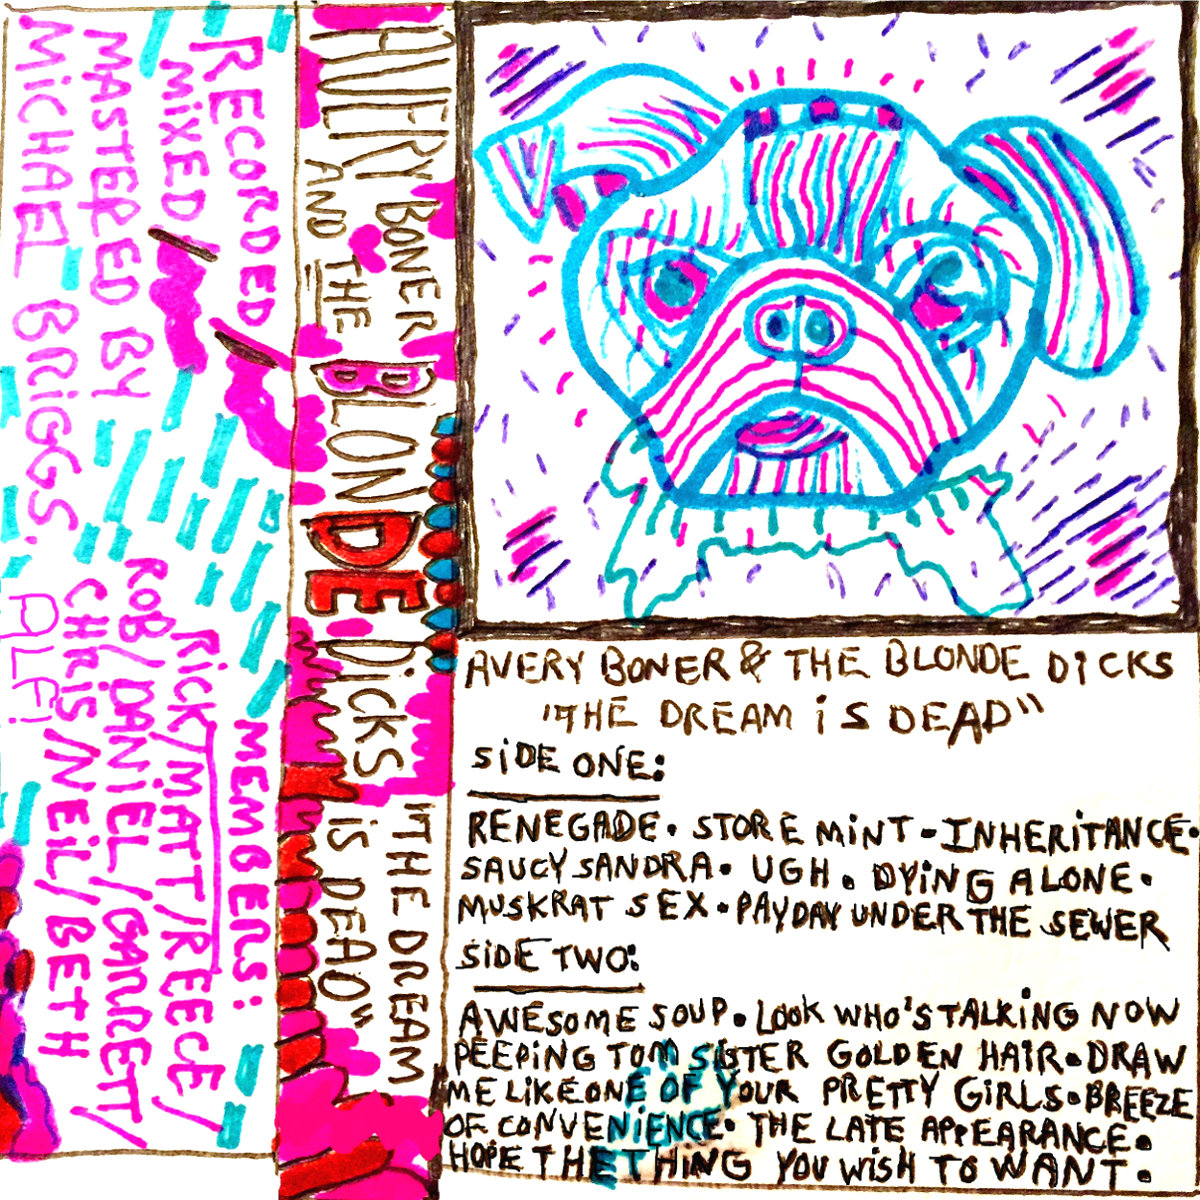 RECORDED/
MIXED/
MASTERED BY
MICHAEL BRIGGS.
MEMBERS:
RICK/MATT/REECE/
ROB/DANIEL/GARRETT/
CHRIS/NEIL/BETH
ALF!
AVERY BONER
AND THE
BLONDE DICKS
"THE DREAM
IS DEAD"
AVERY BONER & THE BLONDE DICKS
"THE DREAM iS DEAD"
SiDE ONE:
RENEGADE. STORE MiNT-INHERiTANCE.
SAUCY SANDRA. UGH. DYiNG ALONE.
MUSKRAT SEX.PAYDAY UNDER THE SEWER
SiDE TWO:
AWESOME SOUP. LOOK WHO'S TALKiNG NOW
PEEPiNG TOM SiSTER GOLDEN HAIR.DRAW
ME LIKE ONE OF YOUR PRETTY GiRLS.BREEZE
OF CONVENiENCE. THE LATE APPEARANCE.
HOPE THE THiNG YOU WiSH TO WANT.